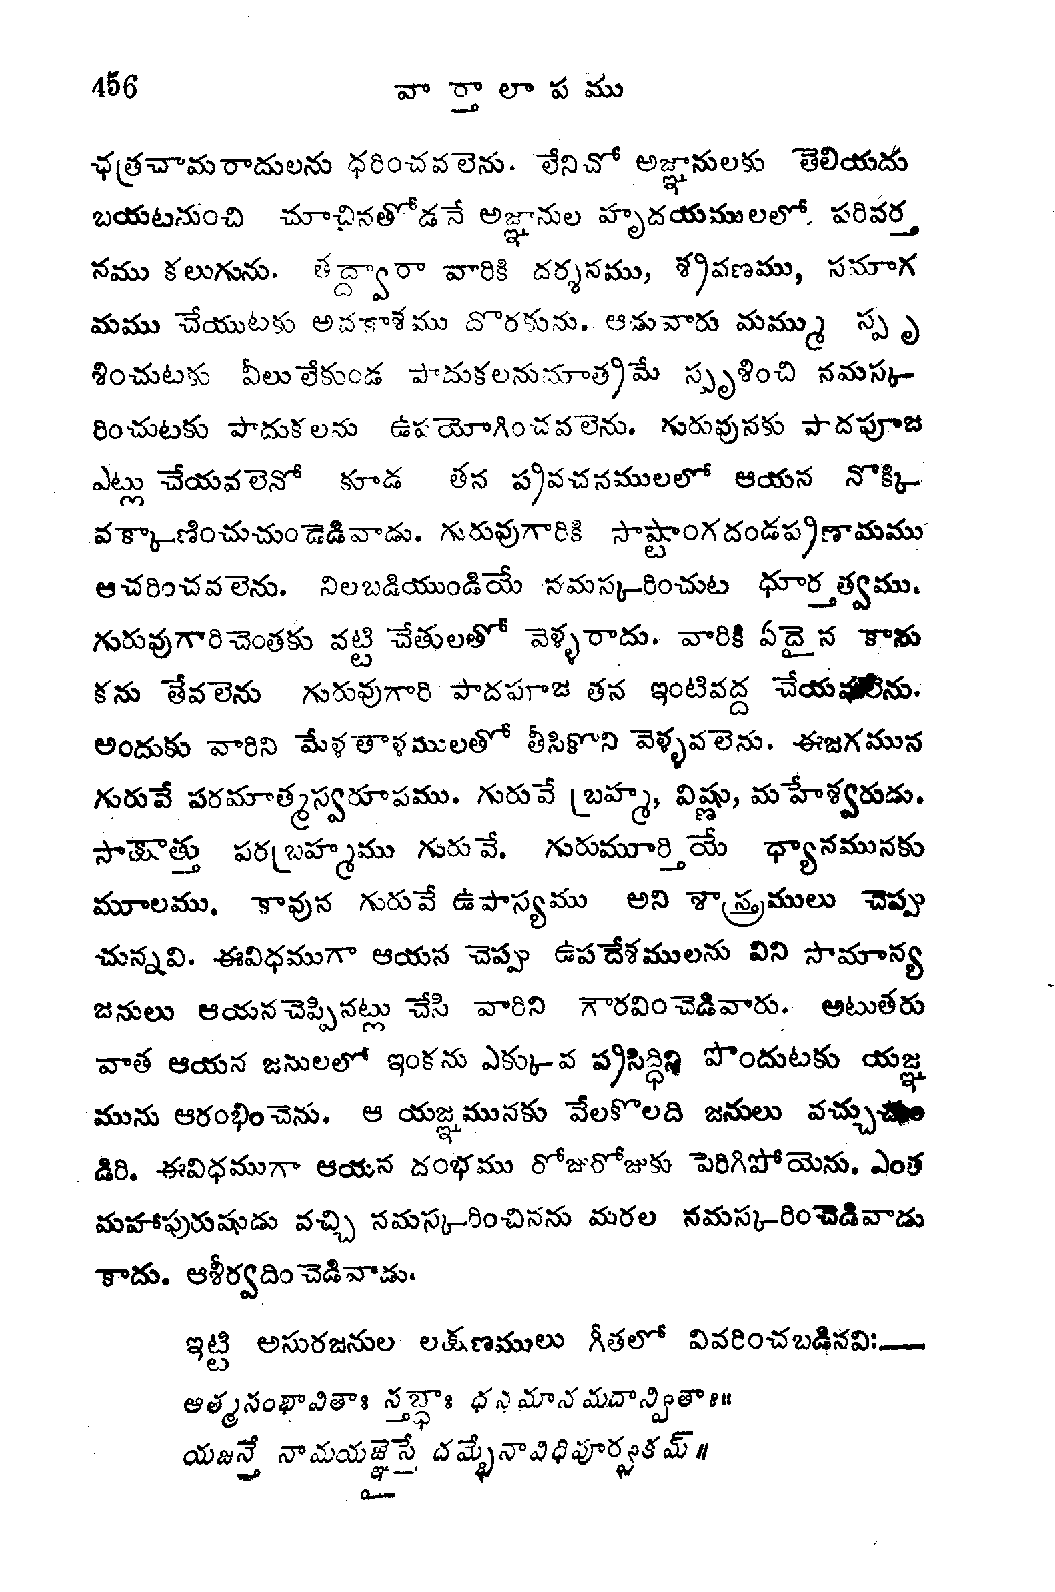 456 వార్తాలాపము
ఛత్రచామరాదులను ధరించవలెను. లేనిచో అజ్ఞానులకు తెలియదు
బయటనుంచి చూచినతోడనే అజ్ఞానుల హృదయములలో పరివర్త
నము కలుగును. తద్ద్వారా వారికి దర్శనము, శ్రవణము, సమాగ
మము చేయుటకు అవకాశము దొరకును. ఆడువారు మమ్ము స్పృ
శించుటకు వీలులేకుండ పాదుకలనుమాత్రమే స్పృశించి నమస్క
రించుటకు పాదుకలను ఉపయోగించవలెను. గురువునకు పాదపూజ
ఎట్లు చేయవలెనో కూడ తన ప్రవచనములలో ఆయన నొక్కి
వక్కాణించుచుండెడివాడు. గురువుగారికి సాష్టాంగదండప్రణామము
ఆచరించవలెను. నిలబడియుండియే నమస్కరించుట ధూర్తత్వము.
గురువుగారిచెంతకు వట్టి చేతులతో వెళ్ళరాదు. వారికి ఏదైన కాను
కను తేవలెను గురువుగారి పాదపూజ తన ఇంటివద్ద చేయవలెను.
అందుకు వారిని మేళతాళములతో తీసికొని వెళ్ళవలెను. ఈజగమున
గురువే పరమాత్మస్వరూపము. గురువే బ్రహ్మ, విష్ణు, మహేశ్వరుడు.
సాక్షాత్తు పరబ్రహ్మము గురువే. గురుమూర్తియే ధ్యానమునకు
మూలము. కావున గురువే ఉపాస్యము అని శాస్త్రములు చెప్పు
చున్నవి. ఈవిధముగా ఆయన చెప్పు ఉపదేశములను విని సామాన్య
జనులు ఆయనచెప్పినట్లు చేసి వారిని గౌరవించెడివారు. అటుతరు
వాత ఆయన జనులలో ఇంకను ఎక్కువ ప్రసిద్ధిని పొందుటకు యజ్ఞ
మును ఆరంభించెను. ఆ యజ్ఞమునకు వేలకొలది జనులు వచ్చుచుం
డిరి. ఈవిధముగా ఆయన దంభము రోజురోజుకు పెరిగిపోయెను. ఎంత
మహాపురుషుడు వచ్చి నమస్కరించినను మరల నమస్కరించెడివాడు
కాదు. ఆశీర్వదించెడివాడు.
ఇట్టి అసురజనుల లక్షణములు గీతలో వివరించబడినవి:—
ఆత్మసంభావితాః స్తబ్ధాః ధనమానమదాన్వితాః॥
యజన్తే నామయజ్ఞైస్తే దమ్భేనావిధిపూర్వకమ్॥